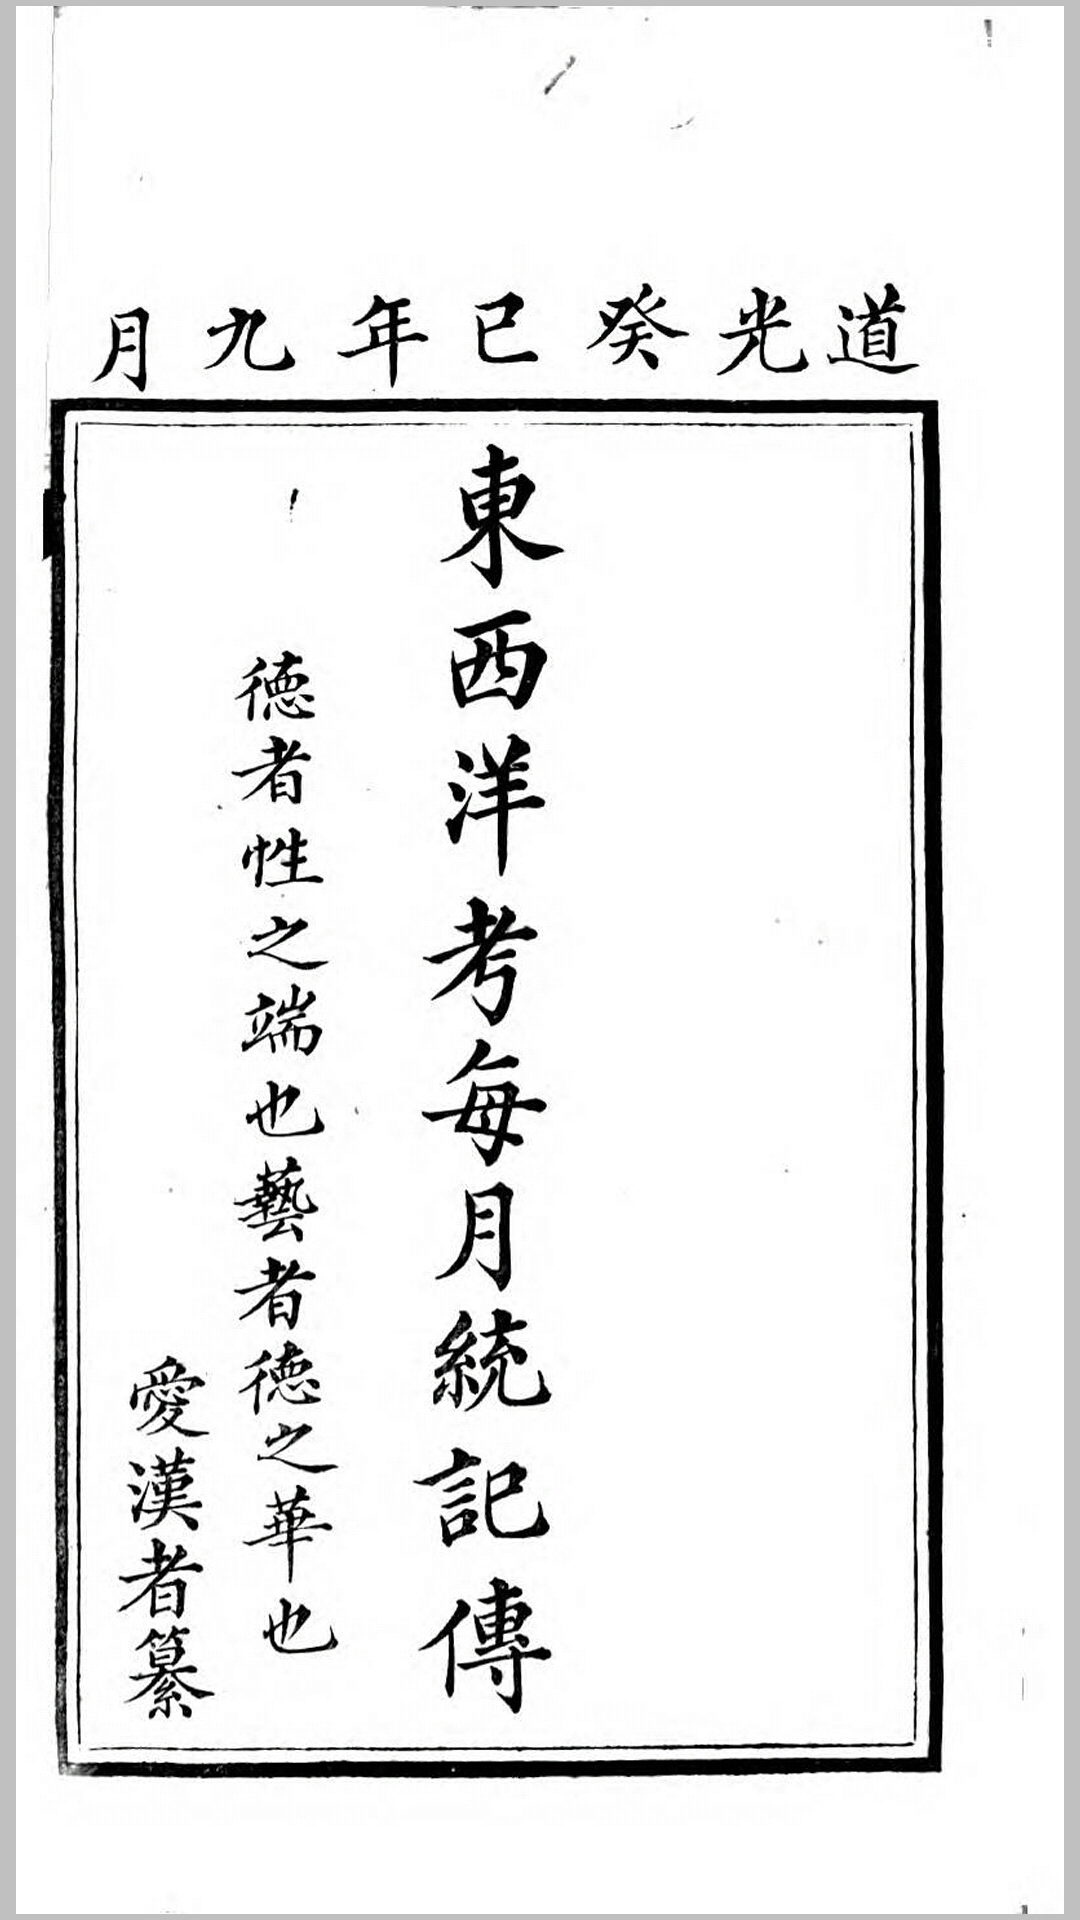 道光癸巳年九月
東西洋考每月統記傳
德者性之端也藝者德之華也
愛漢者纂